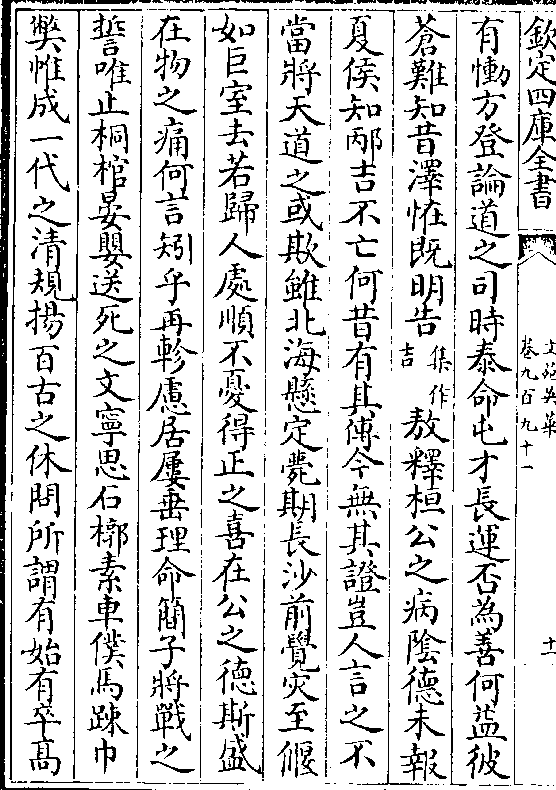 欽定四庫全書
文苑英華
卷九百九十一
十一
有慟方登論道之司時泰命屯才長運否為善何益彼
蒼難知昔澤恠既明告
集作
吉
敖釋桓公之病陰德未報
夏侯知邴吉不亡何昔有其傳今無其證豈人言之不
當將天道之或欺雖北海懸定薨期長沙前覺灾至偃
如巨室去若歸人處順不憂得正之喜在公之德斯盛
在物之痛何言矧乎再軫慮居屢垂理命簡子將戰之
誓唯止桐棺晏嬰送死之文寧思石槨素車僕馬踈巾
弊帷成一代之清規揚百古之休問所謂有始有卒高